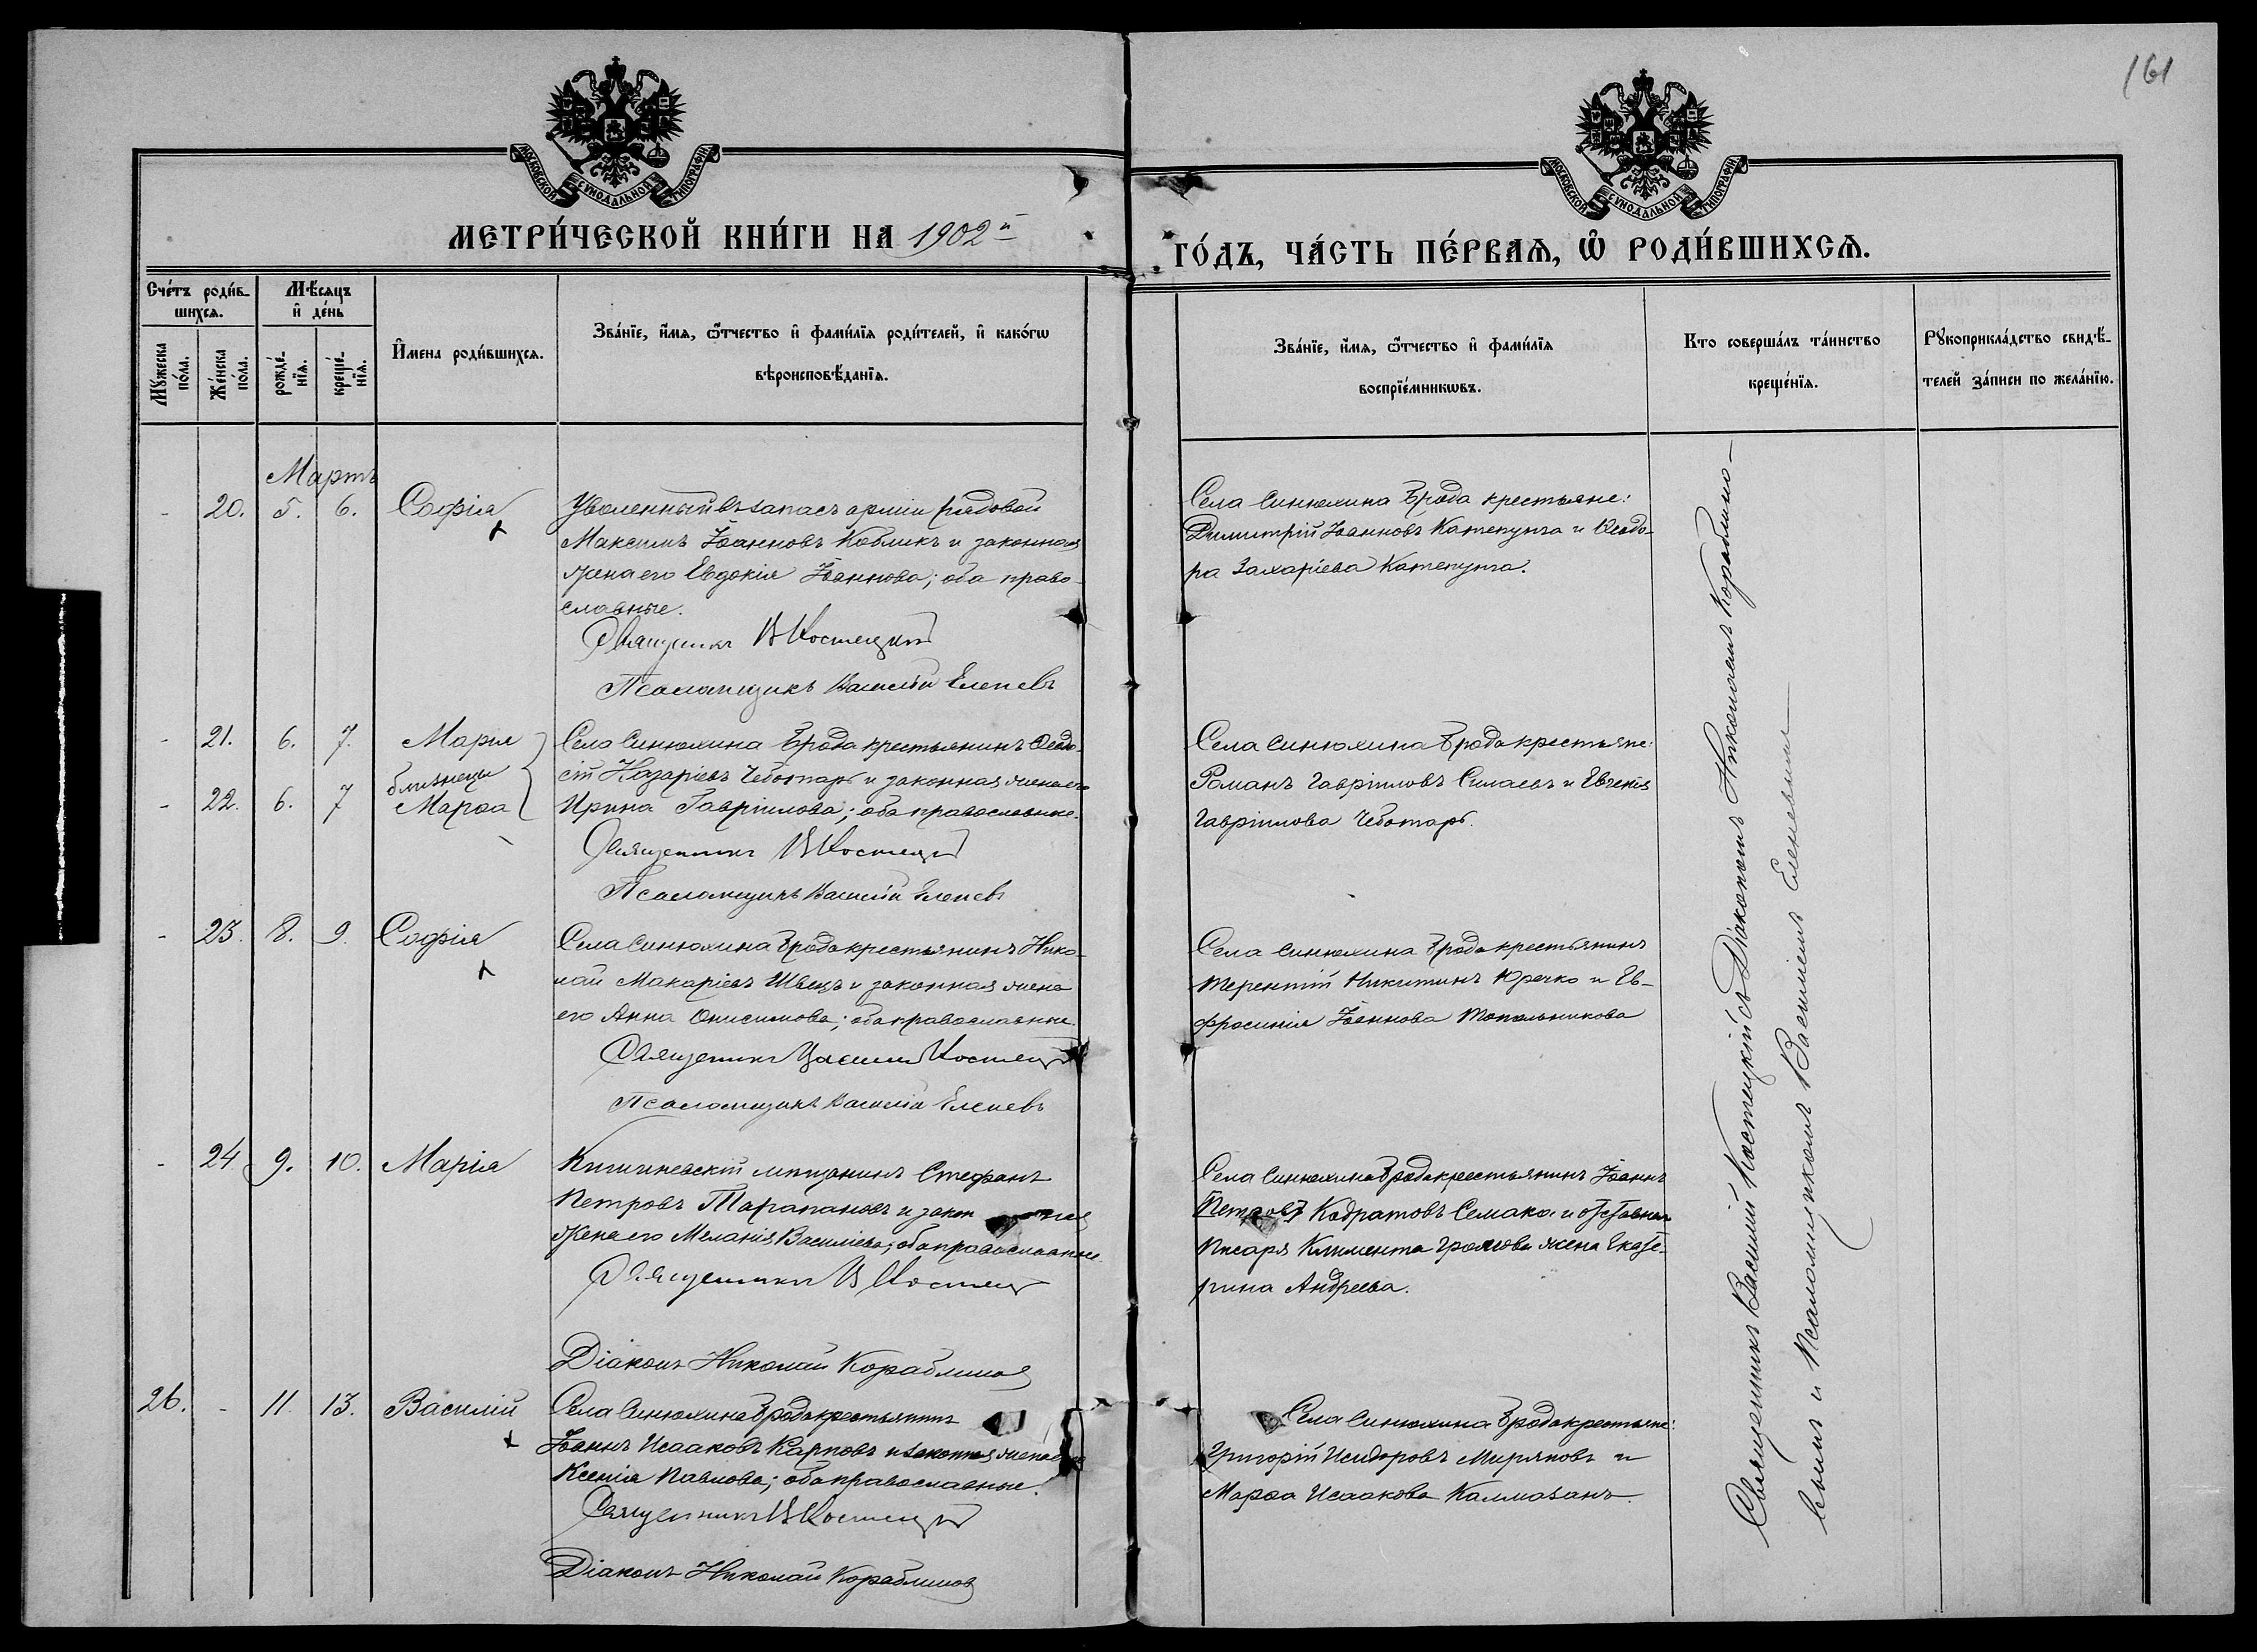 161
МОСКОВСКОЙ СѴНОДАЛЬНОЙ ТИПОГРАФІИ
МОСКОВСКОЙ СѴНОДАЛЬНОЙ ТИПОГРАФІИ
МЕТРИ́ЧЕСКОЙ КНИ́ГИ НА 1902й
ГО́ДЪ, ЧА́СТЬ ПЕ́РВАЯ, Ѽ РОДИ́ВШИХСЯ.
Сче́тъ роди́в-
шихся.
Мѣ́сяцъ
и҆ де́нь
Мꙋжеска по́ла.
Же́нска по́ла.
рожде́-
нїя.
креще́-
нїя.
И҆мена роди́вшихся.
Зва́нїе, и҆́мя, ѻ҆́тчество и҆ фами́лїя роди́телей, и҆ како́гѡ
вѣроисповѣ́данїя.
Зва́нїе, и҆́мя, ѻ҆́тчество и҆ фами́лїя
воспрїе́мникѡвъ.
Кто совершáлъ та́инство
креще́нїя.
Рꙋкоприкла́дство свидѣ́-
телей за́писи по жела́нїю.
Мартъ
- 20. 5. 6. Софія
Уволенный въ запасъ арміи рядовой
Максимъ Іоанновъ Кобликъ и законная
жена его Евдокія Іоаннова; оба право-
славные.
Священникъ В Костецкій
Псаломщикъ Василій Еленевъ
Села Синюхина Брода крестьяне:
Димитрій Іоанновъ Катепута и Ѳеодо-
ра Захаріева Катепута.
- 21. 6. 7. Марія
близнецы
- 22. 6. 7 Марѳа
Села Синюхина Брода крестьянинъ Ѳеодо-
сій Назаріевъ Чеботарь и законная жена его
Ирина Гавріилова; оба православные.
Священникъ В Костецкій
Псаломщикъ Василій Еленевъ
Села Синюхина Брода крестьяне:
Романъ Гавріиловъ Силаевъ и Евгенія
Гавріилова Чеботарь.
- 23. 8. 9. Софія
Села Синюхина Брода крестьянинъ Нико-
лай Макаріевъ Швецъ и законная жена
его Анна Онисимова; оба православные.
Священникъ Василій Костецкій
Псаломщикъ Василій Еленевъ
Села Синюхина Брода крестьянинъ
Терентій Никитинъ Юречко и Ев-
фросинія Іоаннова Топольникова
- 24 9. 10. Марія
Кишиневскій мѣщанинъ Стефанъ
Петровъ Тарапановъ и закон ная
жена его Меланія Василіева; оба православные.
Священникъ В Костецкій
Діаконъ Николай Кораблиновъ
Села Синюхина Брода крестьянинъ Іоаннъ
Петровъ Кодратовъ Семако и отставнаго
писаря Климента Громова жена Екате-
рина Андреева.
26. - 11. 13. Василій
Села Синюхина Брода крестьянинъ
Іоаннъ Исааковъ Карповъ и законная жена его
Ксенія Павлова; оба православные.
Священникъ В Костецкій
Діаконъ Николай Кораблиновъ
Села Синюхина Брода крестьяне:
Григорій Исидоровъ Миряновъ и
Марѳа Исаакова Калмазанъ.
Священникъ Василій Костецкій съ Діакономъ Николаемъ Кораблино-
вымъ и Псаломщикомъ Василіемъ Еленевымъ